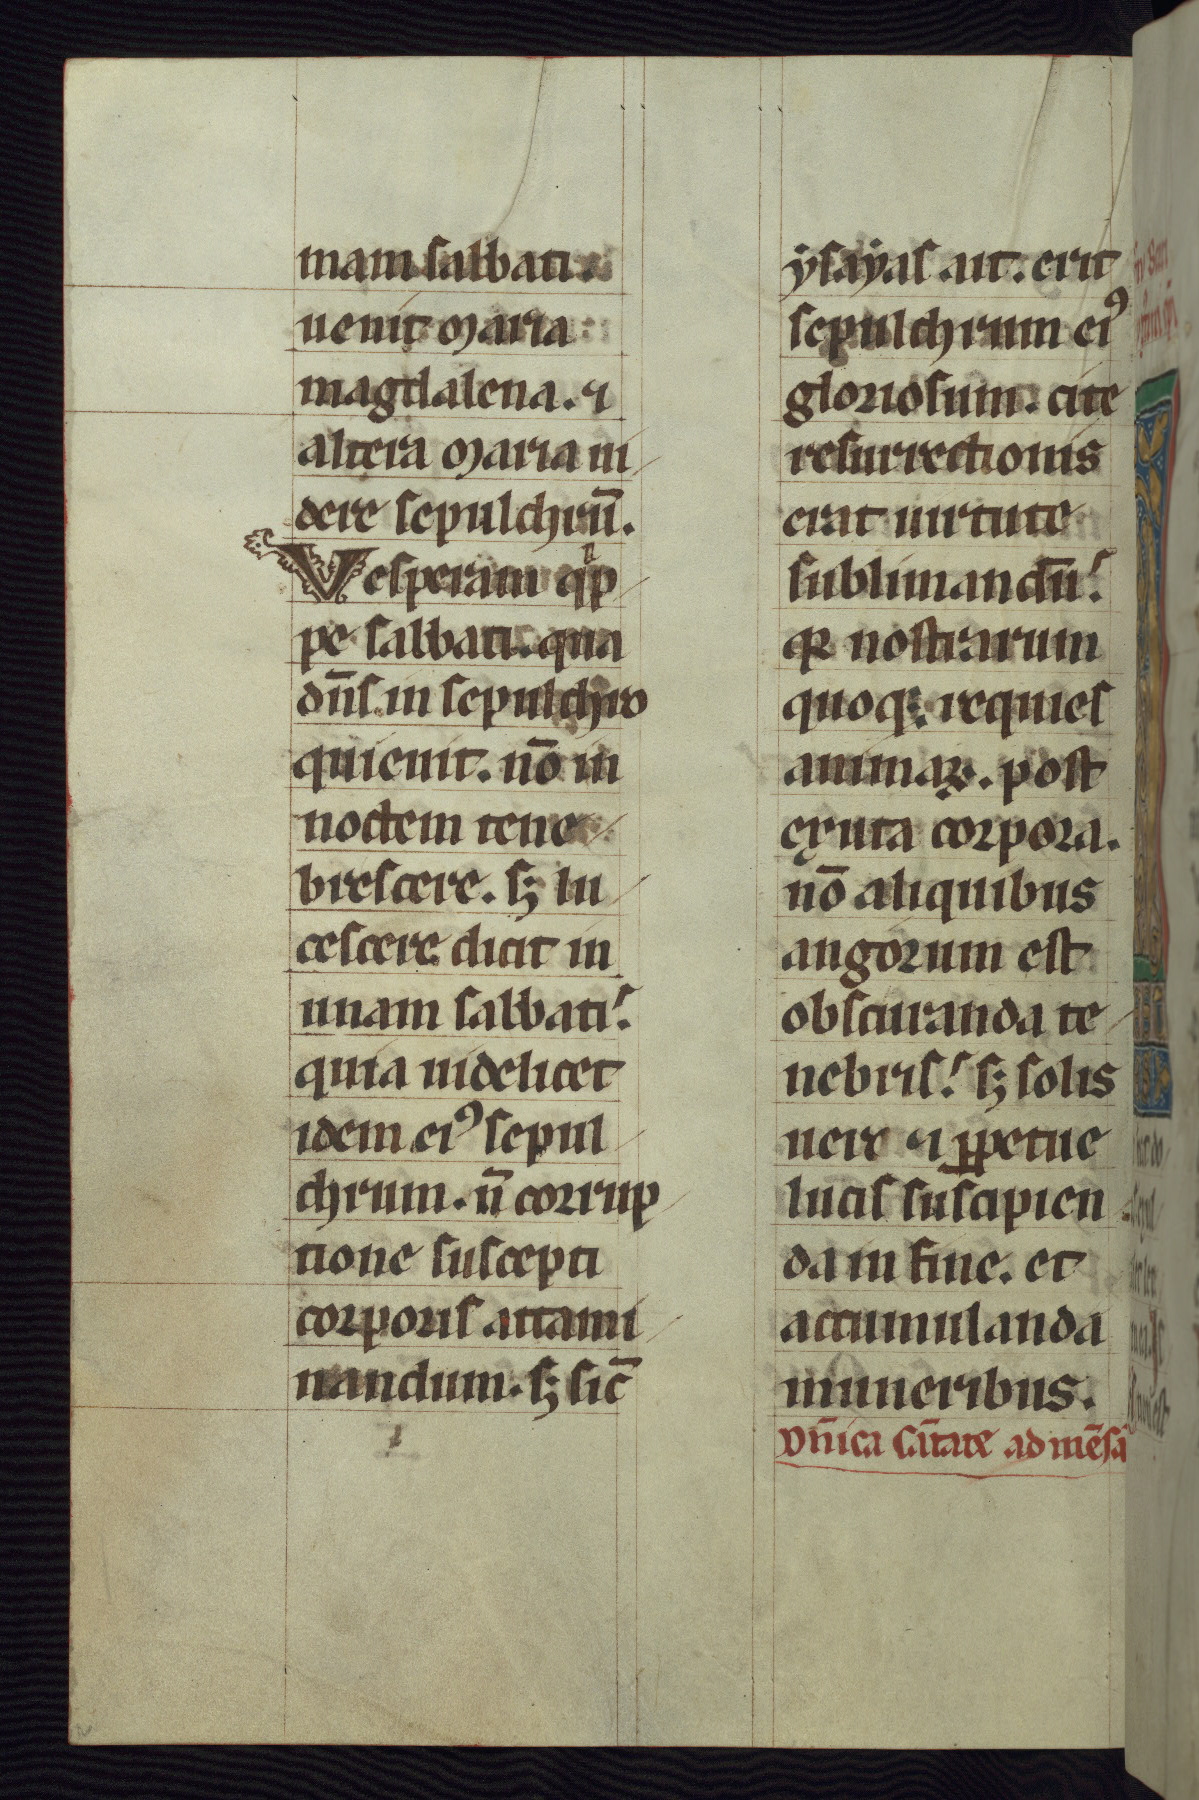 mam sabbati.
uenit maria
magdalena. ⁊
altera maria ui
dere sepulchrū.
Vesperam qͥp
pe sabbati. qua
dn̄s in sepulchro
quieuit. nō in
noctem tene
brescere. sꝫ lu
cescere dicit in
unam sabbati.
quia uidelicet
idem eiꝰ sepul
chrum. n̄ corrup
tione suscepti
corporis attami
nandum. sꝫ sic̄
ẏsaẏas ait. erit
sepulchrum eiꝰ
gloriosum. cite
resurrectionis
erat uirtute
sublimandū.
qꝛ nostrarum
quoqꝫ requies
animaꝝ. post
exuta corpora.
nō aliquibus
angorum est
obscuranda te
nebris. sꝫ solis
uere ⁊ ꝑpetue
lucis suscipien
da in fine. et
accumulanda
muneribus.
Dn̄ica cātate ad mēsā